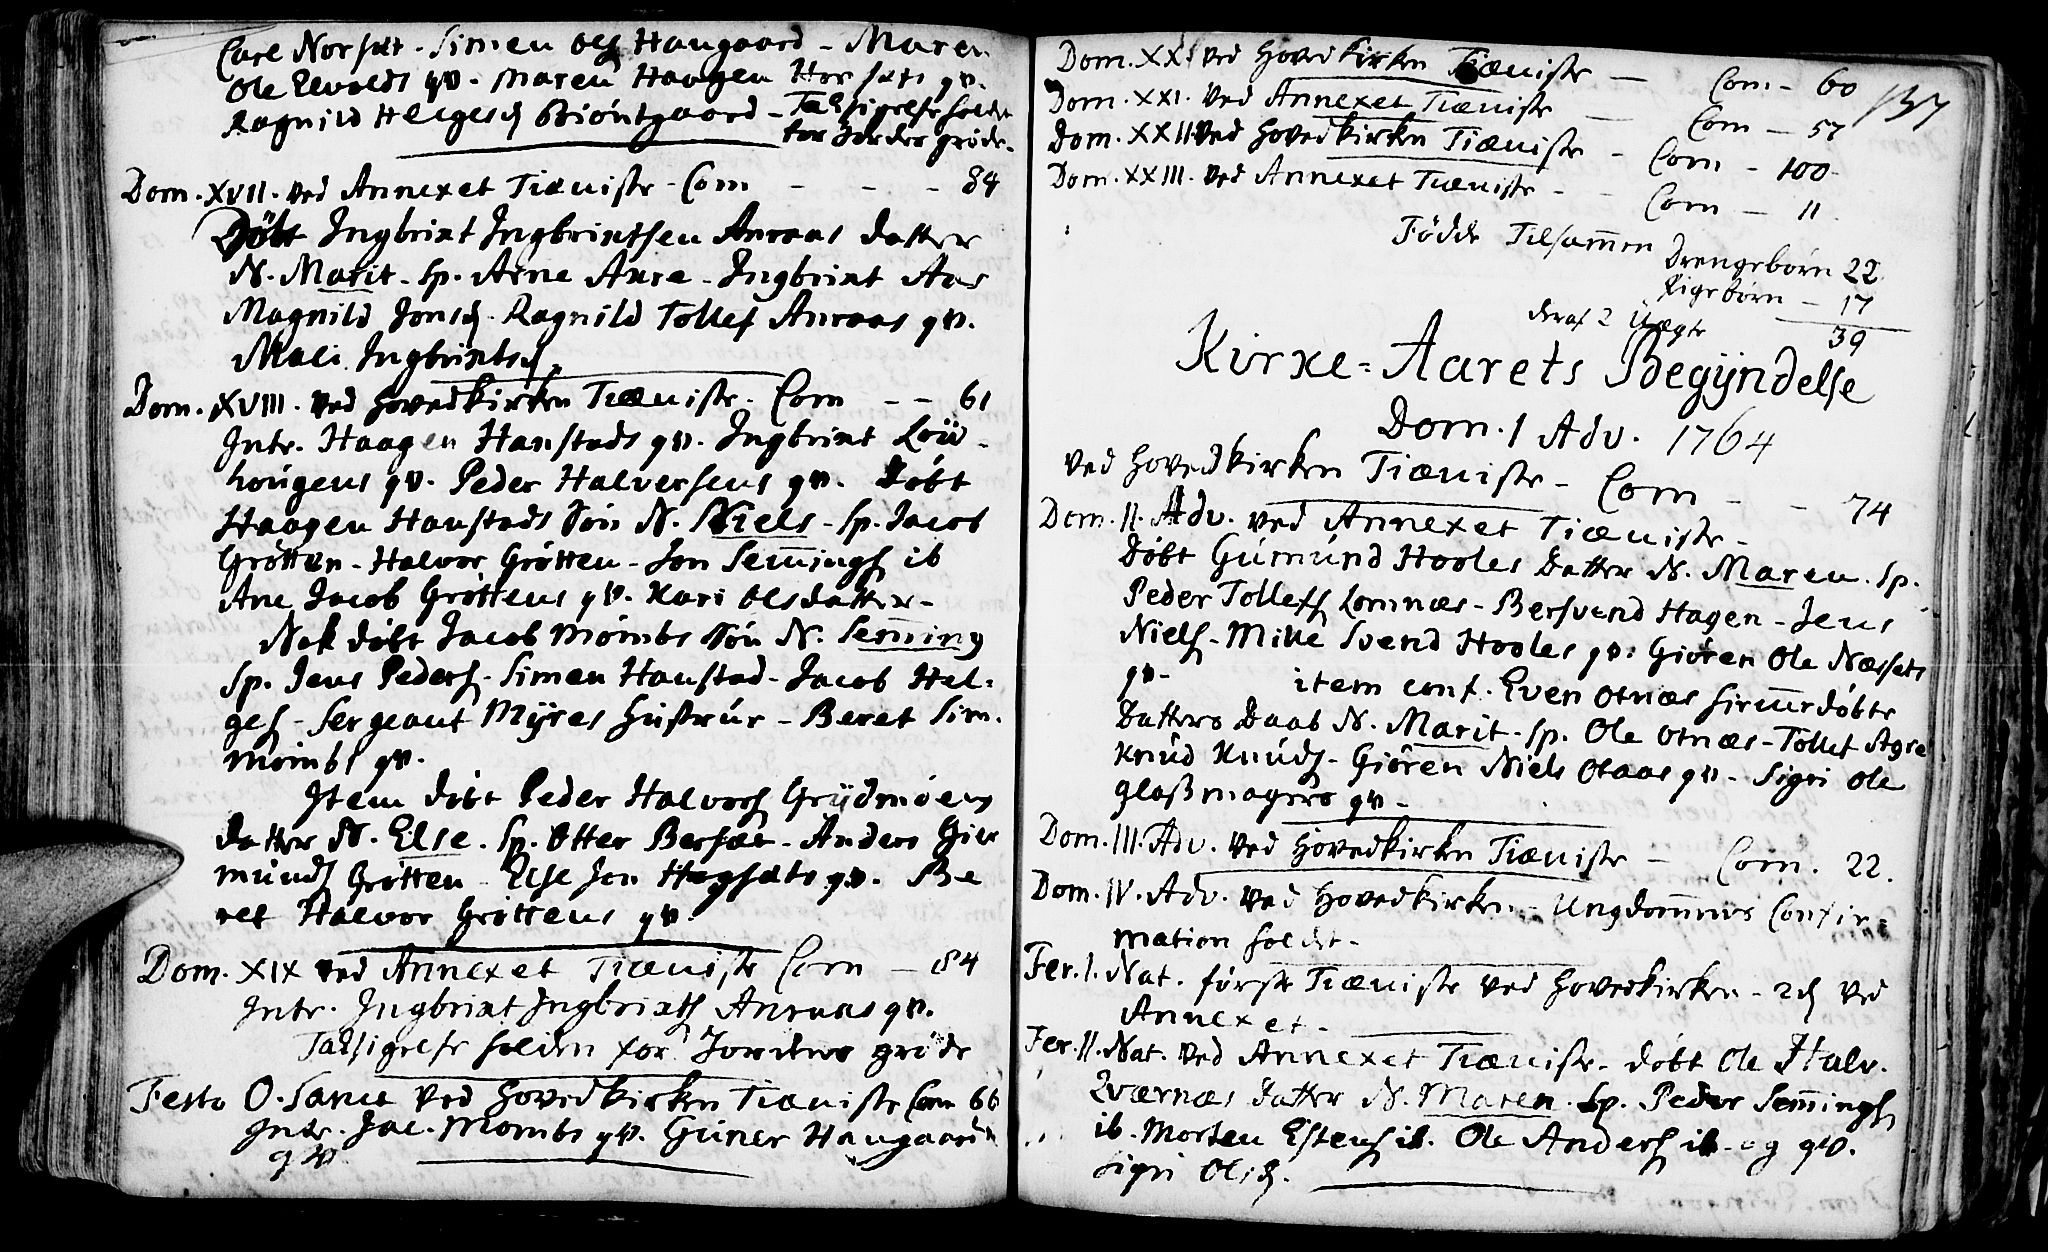 Carl Norsæt - Simen Ols Haugaard - Maren
Ole Elvolds qv. Maren Haagen Horsæts qv.
Ragnild Helgesd Biöntgaard - Taksigelse holdt
for Jordens gröde.
Dom. XVII. ved Annexet Tieniste - Com - - - 84
Döbt Ingbrixt Ingbrixtsen Anraas datter
N. Marit - Sp. Arne Aure - Ingbrixt Aas
Magnild Jonsd. Ragnild Tollef Anraas qv.
Mali Ingbrixtsd.
Dom. XVIII. ved Hovedkirken Tieniste - Com - - 61
Intr. Haagen Hanstads qv. Ingbrixt Löv-
hougens qv. Peder Halversens qv. Döbt
Haagen Hanstads Sön N. Niels - Sp. Jacob
Grötten - Halvor Grötten - Jon Semings ib
Ane Jacob Gröttens qv. Kari Olsdatter -
Nok döbt Jacob Mömbs Sön N. Seming
Sp. Jens Peders - Simen Hanstad - Jacob Hel-
ges - Sergeant Myres Hustrue - Beret Sim.
Mömbs qv.
Item döbt Peder Halvors Grydmöens
datter N. Else. Sp. Otter Bersæt - Anders Gier
munds Grötten - Else Jon Hogsæts qv. Be
ret Halvor Gröttens qv.
Dom. XIX ved Annexet Tieniste Com - 84
Intr. Ingbrixt Ingbrixts Anraas qv.
Taksigelse holden for Jordens gröde
Festo O. Sanct ved Hovedkirken Tieniste Com 66
Intr. Jac. Mömbs qv. Guner Haugaards
qv
Dom. XXI ved Hovedkirken Tieniste - Com - 60
137
Dom. XXI. ved Annexet Tieniste - Com - 57
Dom. XXII ved Hovedkirken Tieniste - Com - 100
Dom. XXIII. ved Annexet Tieniste - - Com - 11.
Födde Tilsamen Drengebörn 22
Pigebörn - 17
deraf 2 Uægte 39
Kirke-Aarets Begyndelse
Dom. 1 Adv. 1764
ved Hovedkirken Tieniste - Com - - 74
Dom. II. Adv. ved Annexet Tieniste -
Döbt Gumund Hooles Datter N. Maren. Sp.
Peder Tollefs Lomnæs - Bersvend Hagen - Jens
Niels - Mille Svend Hooles qv. Giören Ole Næssets
qv - item conf. Even Otnæs hiemedöbte
Datters Daab N. Marit - Sp. Ole Otnæs - Tollef Agre
Knud Knuds - Giören Niels Otaas qv - Sigri Ole
glasmagers qv -
Dom. III. Adv. ved Hovedkirken Tieniste - Com. 22.
Dom. IV. Adv. ved Hovedkirken - Ungdomens Confir-
mation holdt -
Fer. I. Nat. förste Tieniste ved Hovedkirken - 2d ved
Annexet -
Fer. II. Nat. ved Annexet Tieniste - döbt Ole Halv.
Qværnæs datter N. Maren. Sp. Peder Semings
ib. Morten Estens ib. Ole Anders ib - og qv.
Sigri Olsd.